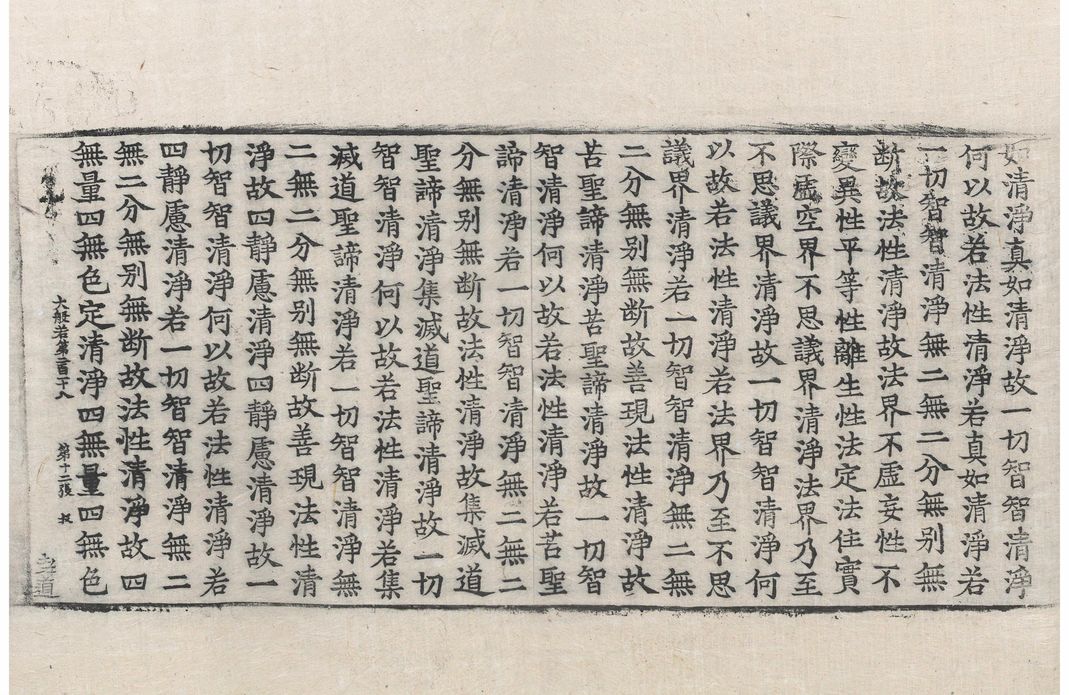 如清淨真如清淨故一切智智清淨
何以故若法性清淨若真如清淨若
一切智智清淨無二無二分無别無
断故法性清淨故法界不虛妄性不
變異性平等性離生性法定法住實
際虛空界不思議界清淨法界乃至
不思議界清淨故一切智智清淨何
以故若法性清淨若法界乃至不思
議界清淨若一切智智清淨無二無
二分無别無断故善現法性清淨故
苦聖諦清淨苦聖諦清淨故一切智
智清淨何以故若法性清淨若苦聖
諦清淨若一切智智清淨無二無二
分無别無断故法性清淨故集滅道
聖諦清淨集滅道聖諦清淨故一切
智智清淨何以故若法性清淨若集
滅道聖諦清淨若一切智智清淨無
二無二分無别無断故善現法性清
淨故四靜慮清淨四靜慮清淨故一
切智智清淨何以故若法性清淨若
四靜慮清淨若一切智智清淨無二
無二分無别無断故法性清淨故四
無量四無色定清淨四無量四無色
大般若第二百十八 第十二張
道